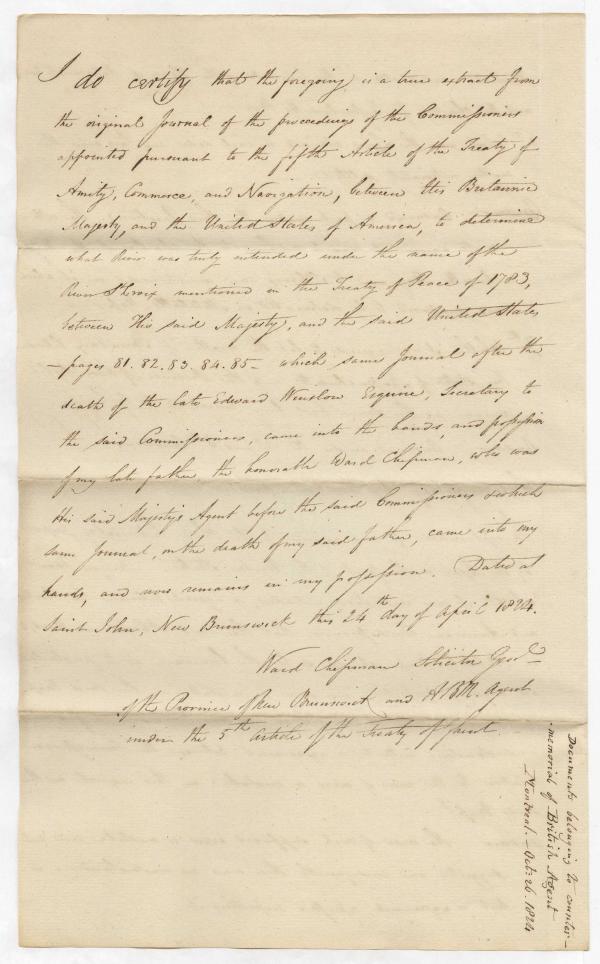 I do certify that the foregoing is a true extract from
the original Journal of the proceedings of the Commissioners
appointed pursuant to the fifth Article of the Treaty of
Amity, Commerce, and Navigation, between His Britannic
Majesty, and the United States of America, to determine
what River was truly intended under the name of the
River St Croix mentioned in the Treaty of Peace of 1783,
between His said Majesty, and the said United States
– pages 81. 82. 83. 84. 85 – which same Journal after the
death of the late Edward Winslow Esquire, Secretary to
the said Commissioners, came into the hands, and possession
of my late father, the honorable Ward Chipman, who was
His said Majesty's Agent before the said Commissioners & which
same Journal, on the death of my said father, came into my
hands, and now remains in my possession. Dated at
Saint John, New Brunswick this 24th day of April 1824.
Ward Chipman Solicitor Genl
of the Province of New Brunswick and H.B.M. Agent
under the 5th article of the Treaty of Ghent.
Documents belonging to counter-
memorial of British Agent
Montreal. – Oct: 26. 1824